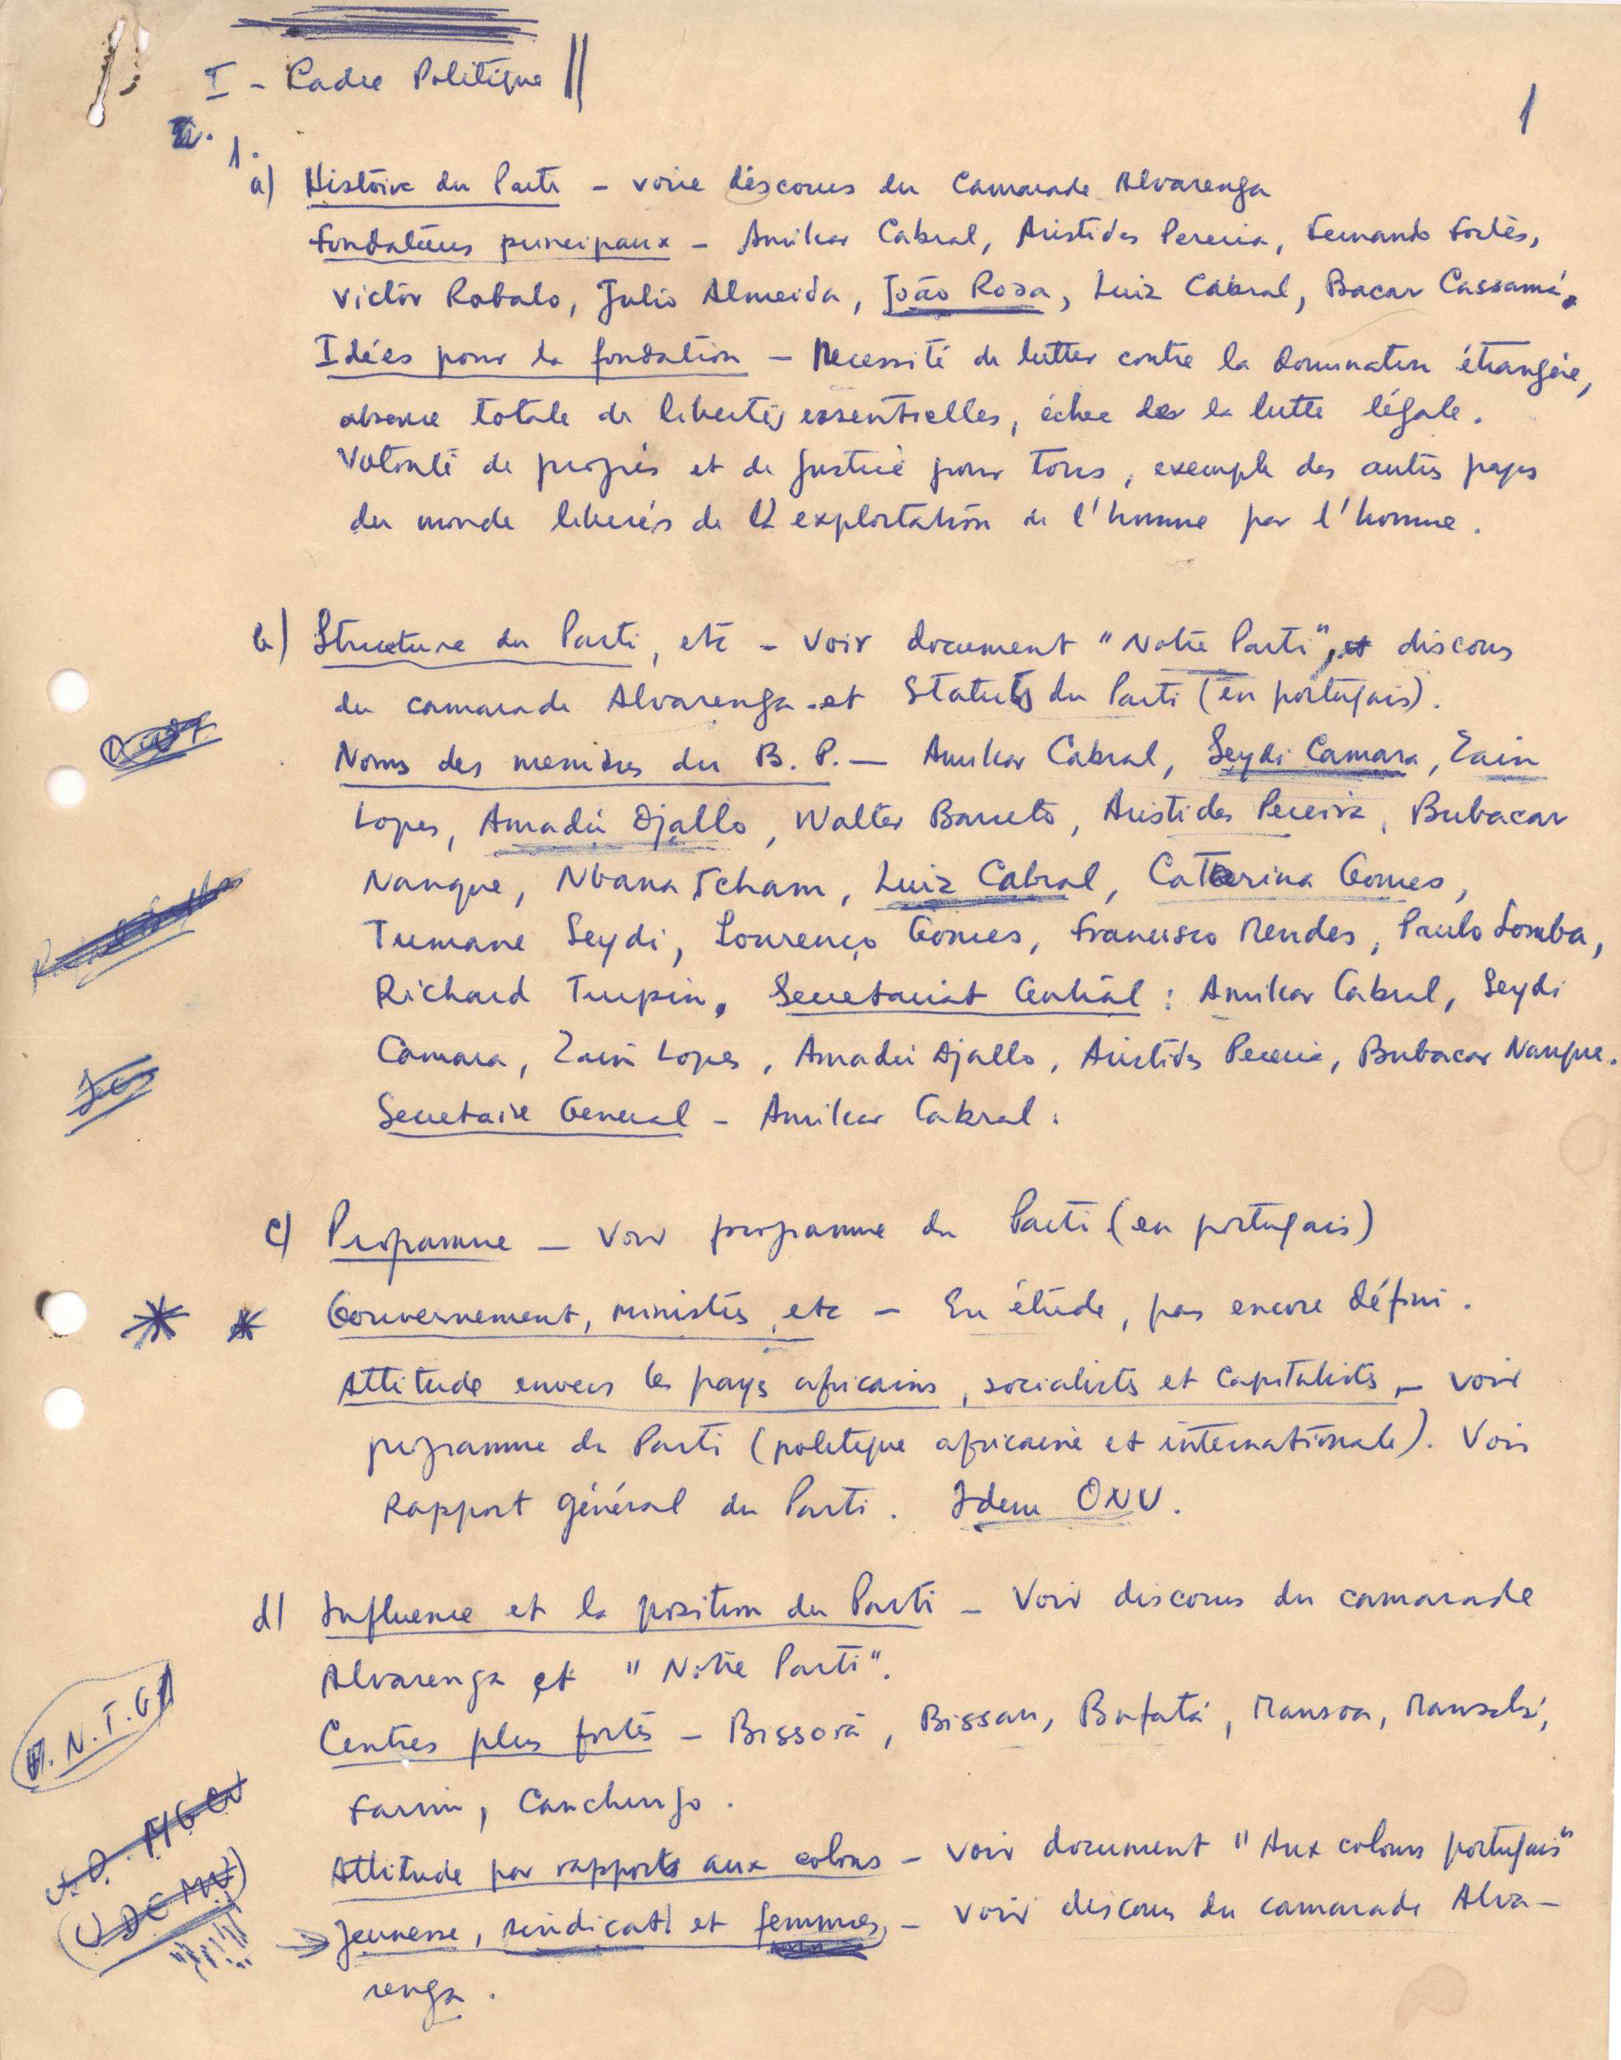 I - Cadre Politique
1
1.
a) Histoire du Parti - voire discours du Camarade Alvarenga
Fondateurs principaux - Amilcar Cabral, Aristides Pereira, Fernando Fortès,
Victor Robalo, Julio Almeida, João Rosa, Luiz Cabral, Bacar Cassamá.
Idées pour la fondation - Necessité de lutter contre la domination étrangère,
absence totale de libertés essentielles, échec de la lutte légale.
Volonté de progrès et de justice pour tous, exemple des autres pays
du monde liberés de l'exploitation de l'homme par l'homme.
b) Structure du Parti, etc - Voir document "Notre Parti", et discours
du camarade Alvarenga et Statuts du Parti (en portugais).
Noms des membres du B. P. - Amilcar Cabral, Seydi Camara, Zain
Lopes, Amadú Djallo, Walter Barreto, Aristides Pereira, Bubacar
Nanque, Nbana Tcham, Luiz Cabral, Caterina Gomes,
Tumane Seydi, Lourenço Gomes, Francisco Mendes, Paulo Lomba,
Richard Turpin. Secretariat Central : Amilcar Cabral, Seydi
Camara, Zain Lopes, Amadú Djallo, Aristides Pereira, Bubacar Nanque.
Secretaire General - Amilcar Cabral.
c) Programme - Voir programme du Parti (en portugais)
Gouvernement, ministres, etc - En étude, pas encore défini.
Attitude envers les pays africains, socialistes et capitalistes - voir
programme du Parti (politique africaine et internationale). Voir
Rapport général du Parti. Idem ONU.
d) Influence et la position du Parti - Voir discours du camarade
Alvarenga et "Notre Parti".
Centres plus forts - Bissorã, Bissau, Bafatá, Mansoa, Mansabá,
Farim, Canchungo.
Attitude par rapports aux colons - voir document "Aux colons portugais"
Jeunesse, sindicat et femmes - voir discours du camarade Alva-
renga.
U.N.T.G
UDEMU